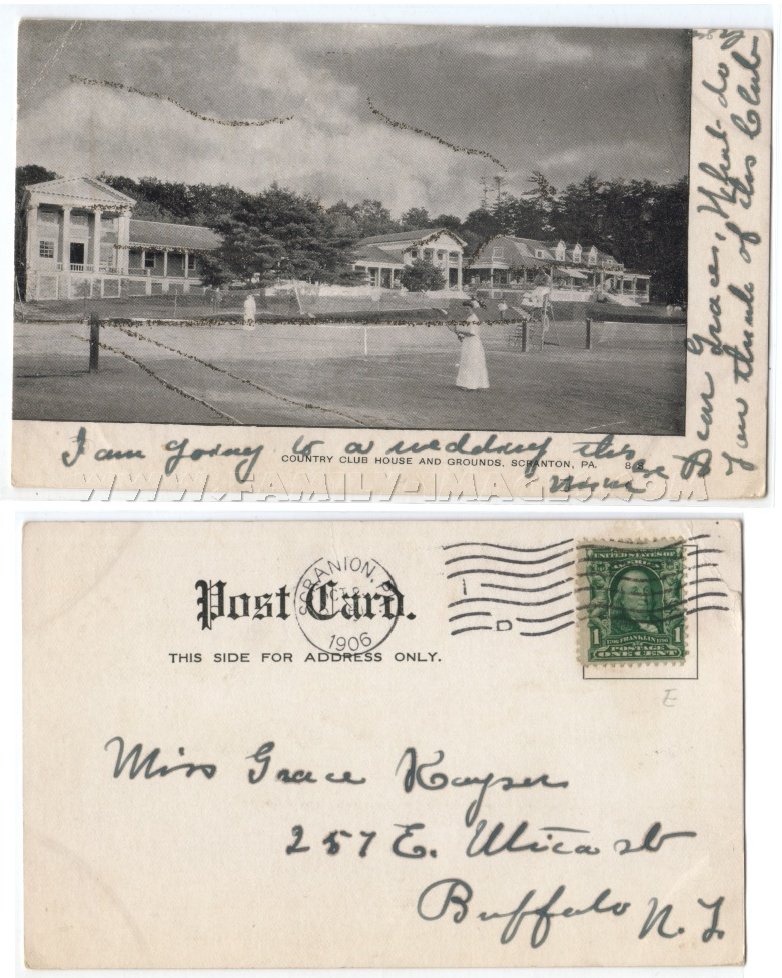 Dear Grace, What do
you think of this Club
I am going to a wedding this
COUNTRY CLUB HOUSE AND GROUNDS, SCRANTON, PA. 8 S.
WWW.FAMILY-IMAGES.COM
Post Card.
THIS SIDE FOR ADDRESS ONLY.
SCRANTON, PA.
1906
D
UNITED STATES OF
AMERICA
FRANKLIN
1 POSTAGE 1
ONE CENT
E
Miss Grace Kayser
257 E. Utica st
Buffalo N.Y.